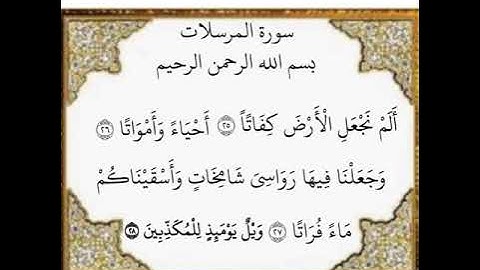 سورة المرسلات
بسم الله الرحمن الرحيم
أَلَمْ نَجْعَلِ الْأَرْضَ كِفَاتًا ۝٢٥ أَحْيَاءً وَأَمْوَاتًا ۝٢٦
وَجَعَلْنَا فِيهَا رَوَاسِيَ شَامِخَاتٍ وَأَسْقَيْنَاكُمْ
مَاءً فُرَاتًا ۝٢٧ وَيْلٌ يَوْمَئِذٍ لِلْمُكَذِّبِينَ ۝٢٨